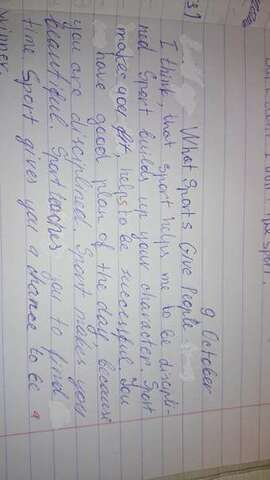 9 October
What Sports Give People
I think, that sport helps me to be discipli-
ned. Sport builds up your character. Sport
makes you fit, helps to be successful. You
have good plan of the day, because
you are disciplined. Sport makes you
beautiful. Sport teaches you to find
time. Sport gives you a chance to be a
winner.